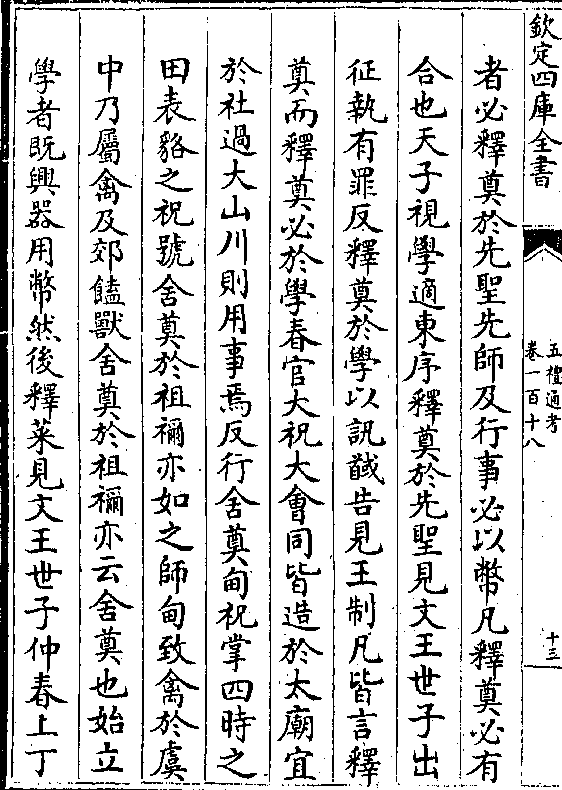 欽定四庫全書
五禮通考
卷一百十八
十三
者必釋奠於先聖先師及行事必以幣凡釋奠必有
合也天子視學適東序釋奠於先聖見文王世子出
征執有罪反釋奠於學以訊馘告見王制凡皆言釋
奠而釋奠必於學春官大祝大會同皆造於太廟宜
於社過大山川則用事焉反行舍奠甸祝掌四時之
田表貉之祝號舍奠於祖禰亦如之師甸致禽於虞
中乃屬禽及郊饁獸舍奠於祖禰亦云舍奠也始立
學者既興器用幣然後釋菜見文王世子仲春上丁